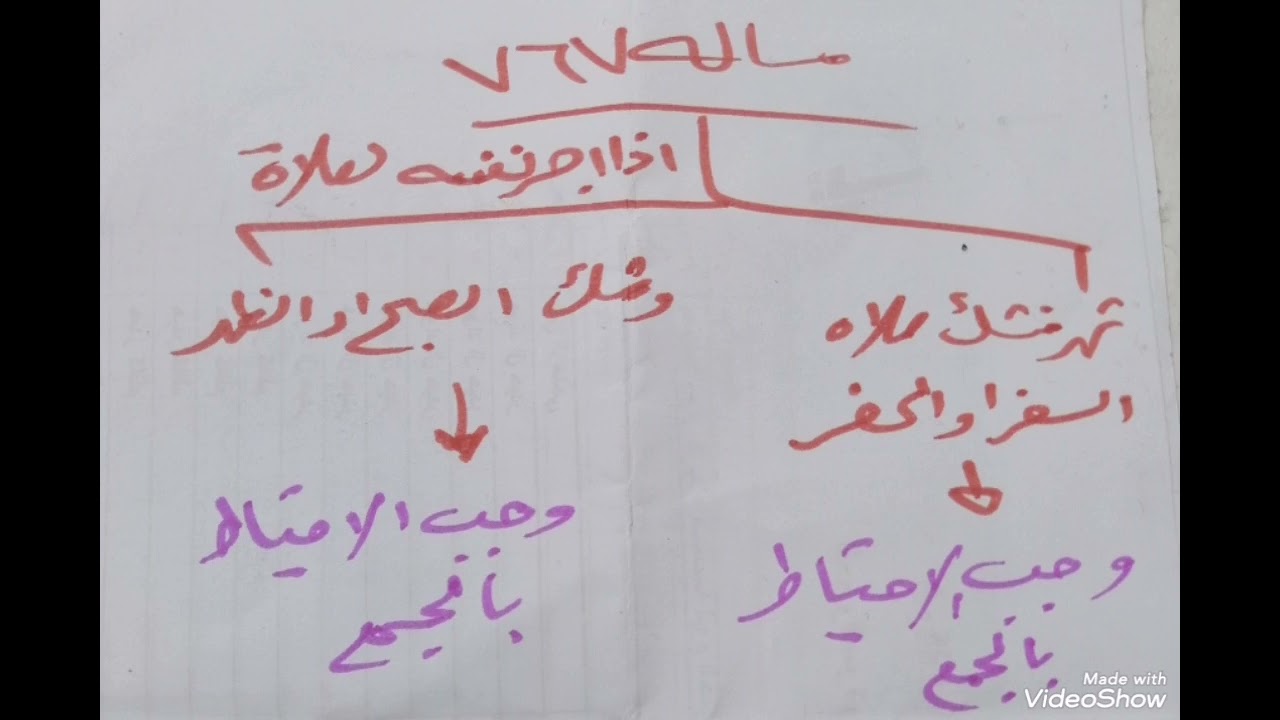 مساله ٧٦٧
اذا اجر نفسه لصلاة
شهر فشك صلاه
السفر او الحضر
وجب الاحتياط
بالجمع
وشك الصبح او الظهر
وجب الاحتياط
بالجمع
Made with
VideoShow